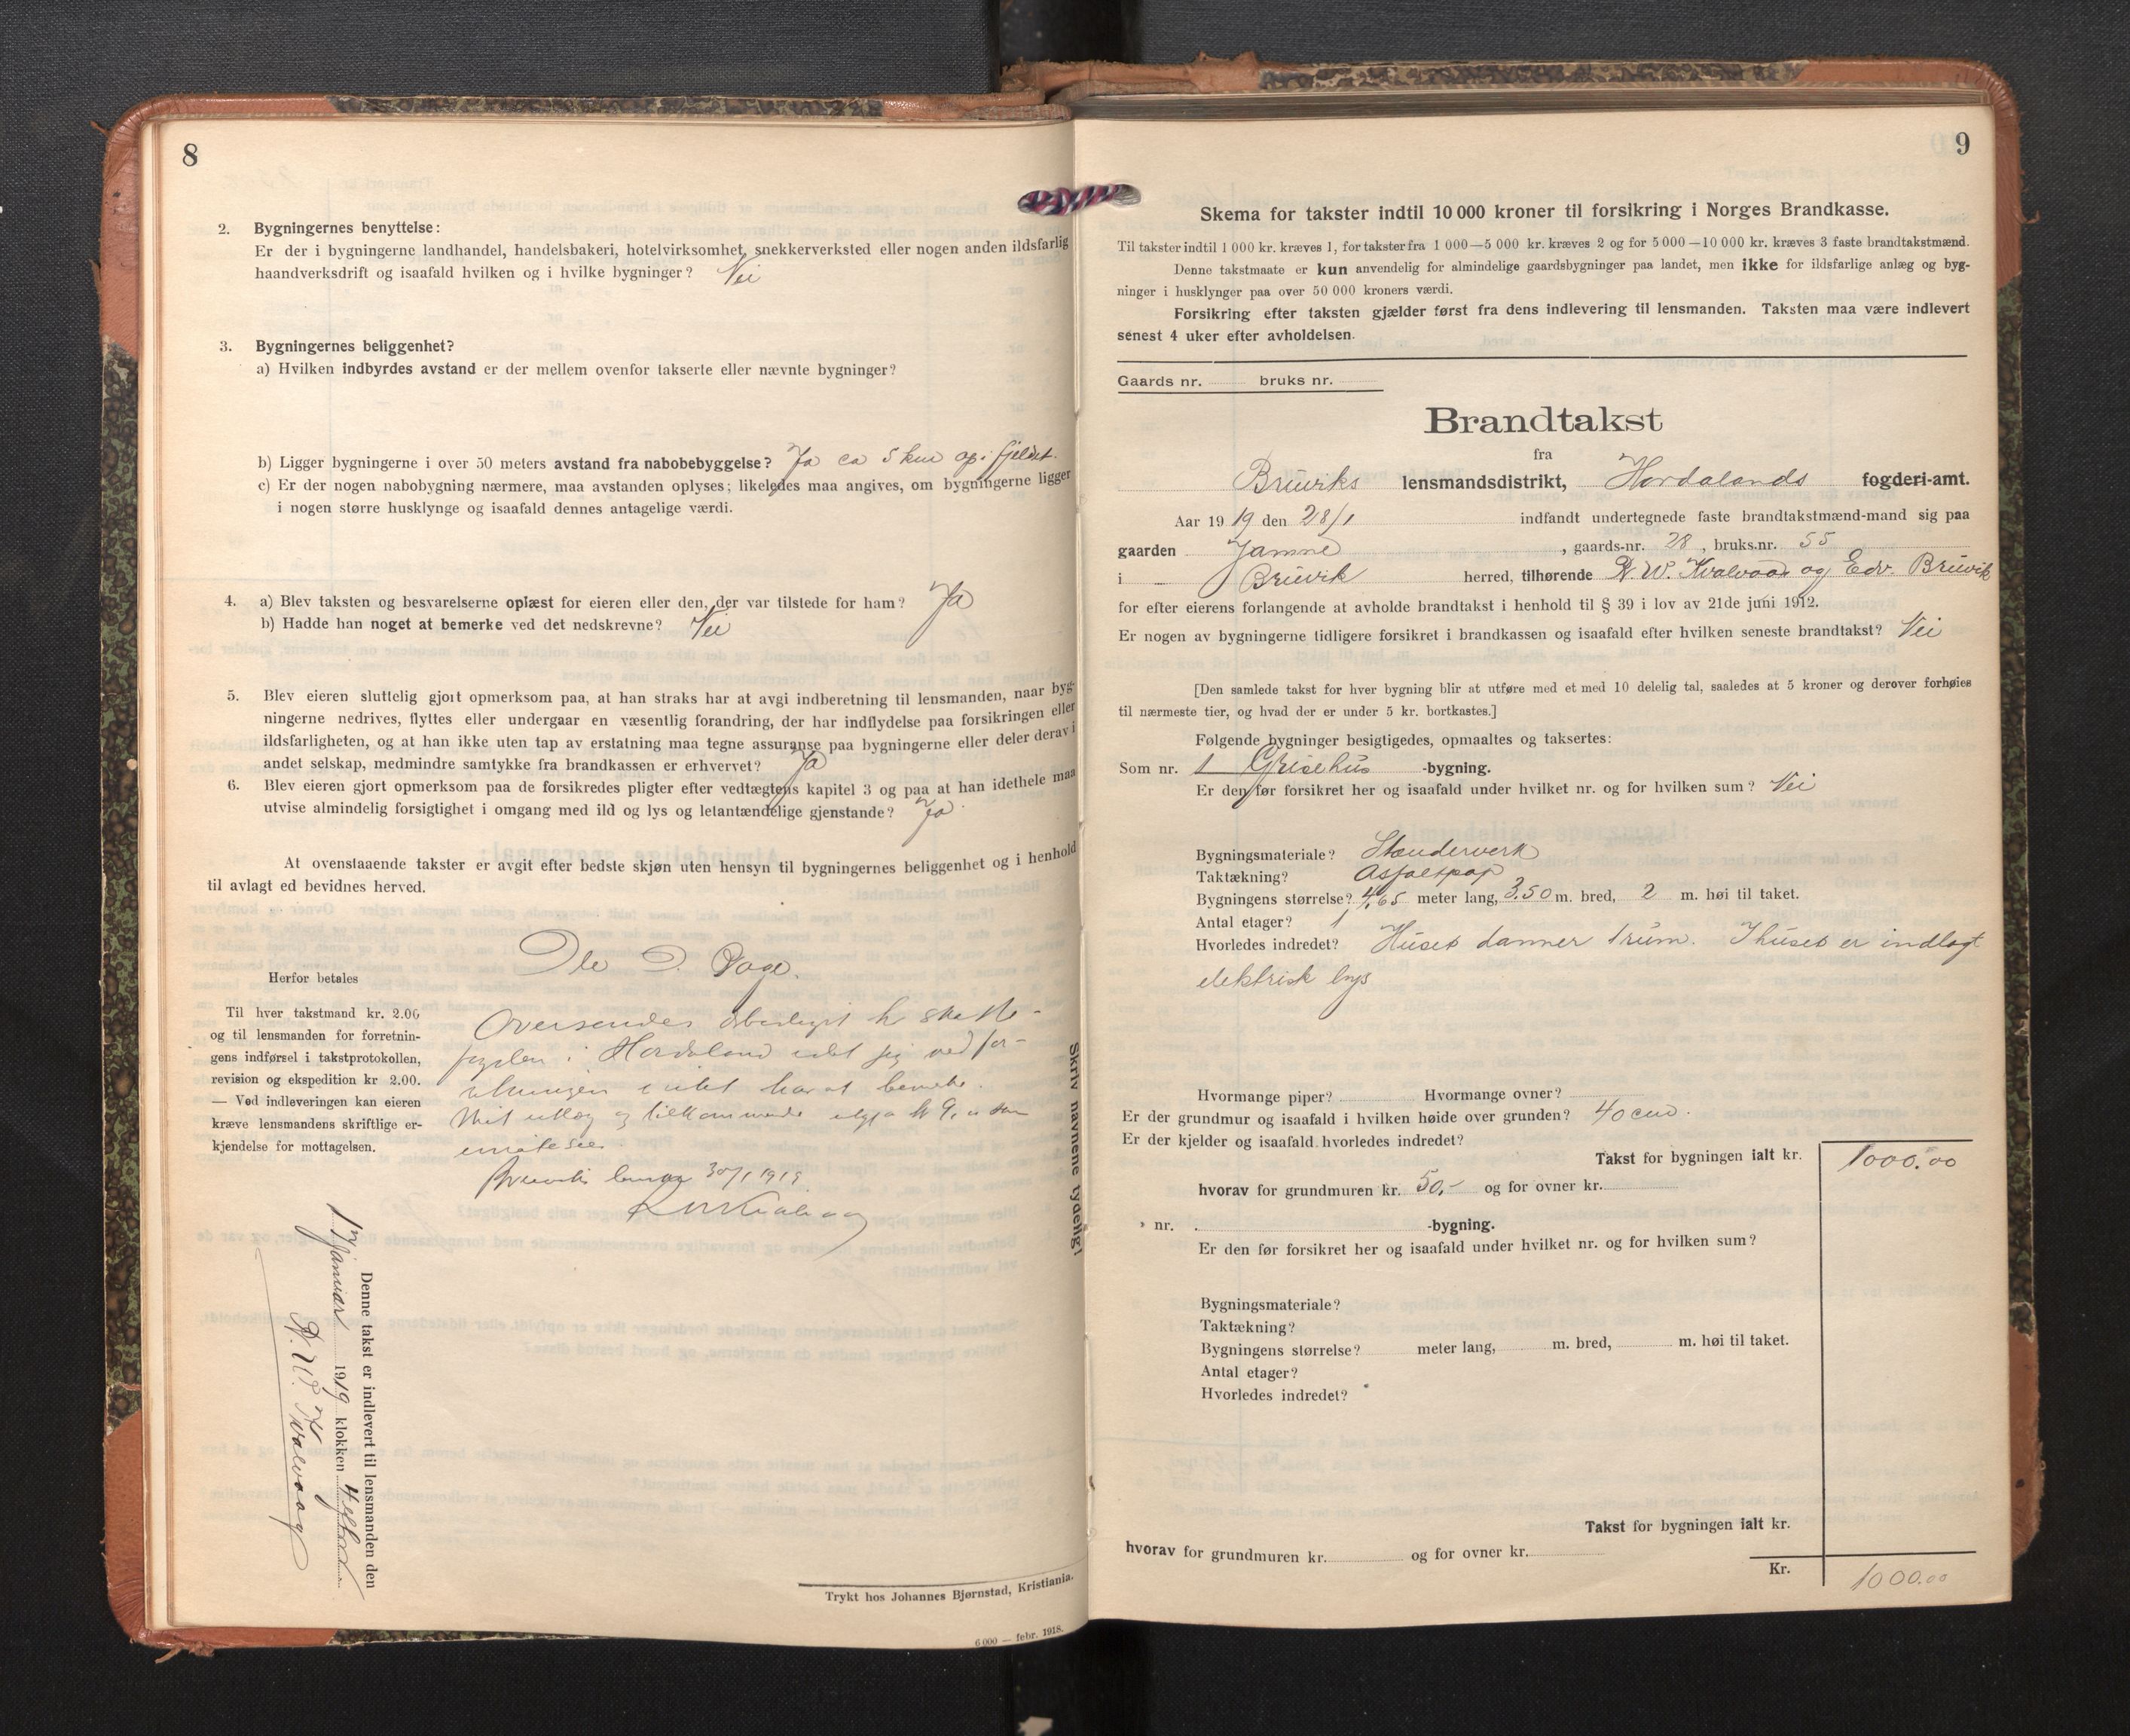 8
2. Bygningernes benyttelse:
Er der i bygningerne landhandel, handelsbakeri, hotelvirksomhet, snekkerverksted eller nogen anden ildsfarlig
haandverksdrift og isaafald hvilken og i hvilke bygninger? Nei
3. Bygningernes beliggenhet?
a) Hvilken indbyrdes avstand er der mellem ovenfor takserte eller nævnte bygninger?
b) Ligger bygningerne i over 50 meters avstand fra nabobebyggelse? Ja ca 5 km op i fjeldet.
c) Er der nogen nabobygning nærmere, maa avstanden oplyses; likeledes maa angives, om bygningerne ligger
i nogen større husklynge og isaafald dennes antagelige værdi.
4. a) Blev taksten og besvarelserne oplæst for eieren eller den, der var tilstede for ham? Ja
b) Hadde han noget at bemerke ved det nedskrevne? Nei
5. Blev eieren sluttelig gjort opmerksom paa, at han straks har at avgi indberetning til lensmanden, naar byg-
ningerne nedrives, flyttes eller undergaar en væsentlig forandring, der har indflydelse paa forsikringen eller
ildsfarligheten, og at han ikke uten tap av erstatning maa tegne assuranse paa bygningerne eller deler derav i
andet selskap, medmindre samtykke fra brandkassen er erhvervet? Ja
6. Blev eieren gjort opmerksom paa de forsikredes pligter efter vedtægtens kapitel 3 og paa at han idethele maa
utvise almindelig forsigtighet i omgang med ild og lys og letantændelige gjenstande? Ja
At ovenstaaende takster er avgit efter bedste skjøn uten hensyn til bygningernes beliggenhet og i henhold
til avlagt ed bevidnes herved.
Herfor betales
Til hver takstmand kr. 2.00
og til lensmanden for forretnin-
gens indførsel i takstprotokollen,
revision og ekspedition kr 2.00.
— Ved indleveringen kan eieren
kræve lensmandens skriftlige er-
kjendelse for mottagelsen.
Ole
Oversendes hr skatte-
fogden i Hordaland idet jeg ved for-
intet har at bemerke.
Mit utlæg og tilkommende
30/1 1919
Denne takst er indlevert til lensmanden den
januar 1919 klokken 4
N. W. Kvalvaag
Skriv navnene tydelig!
Trykt hos Johannes Bjørnstad, Kristiania.
6 000 — febr. 1918.
9
Skema for takster indtil 10 000 kroner til forsikring i Norges Brandkasse.
Til takster indtil 1 000 kr. kræves 1, for takster fra 1 000—5 000 kr. kræves 2 og for 5 000—10 000 kr. kræves 3 faste brandtakstmænd.
Denne takstmaate er kun anvendelig for almindelige gaardsbygninger paa landet, men ikke for ildsfarlige anlæg og byg-
ninger i husklynger paa over 50 000 kroners værdi.
Forsikring efter taksten gjælder først fra dens indlevering til lensmanden. Taksten maa være indlevert
senest 4 uker efter avholdelsen.
Gaards nr. bruks nr.
Brandtakst
fra
Bruviks lensmandsdistrikt, Hordalands fogderi-amt.
Aar 1919 den 28/1 indfandt undertegnede faste brandtakstmænd-mand sig paa
gaarden Jamne, gaards-nr. 28, bruks.nr. 55
i Bruvik herred, tilhørende N. W. Kvalvaag og Edv. Bruvik
for efter eierens forlangende at avholde brandtakst i henhold til § 39 i lov av 21de juni 1912.
Er nogen av bygningerne tidligere forsikret i brandkassen og isaafald efter hvilken seneste brandtakst? Nei
[Den samlede takst for hver bygning blir at utføre med et med 10 delelig tal, saaledes at 5 kroner og derover forhøies
til nærmeste tier, og hvad der er under 5 kr. bortkastes.]
Følgende bygninger besigtigedes, opmaaltes og taksertes:
Som nr. 1 Grisehus -bygning.
Er den før forsikret her og isaafald under hvilket nr. og for hvilken sum? Nei
Bygningsmateriale? Stenderverk
Taktækning? Asfaltpap
Bygningens størrelse? 4,65 meter lang, 3.50 m. bred, 2 m. høi til taket.
Antal etager? 1
Hvorledes indredet? Huset danner 1 rum. I huset er indlagt
elektrisk lys
Hvormange piper? Hvormange ovner?
Er der grundmur og isaafald i hvilken høide over grunden? 40 cm.
Er der kjelder og isaafald hvorledes indredet?
Takst for bygningen ialt kr. 1000.00
hvorav for grundmuren kr. 50,- og for ovner kr.
» nr. -bygning.
Er den før forsikret her og isaafald under hvilket nr. og for hvilken sum?
Bygningsmateriale?
Taktækning?
Bygningens størrelse? meter lang, m. bred, m. høi til taket.
Antal etager?
Hvorledes indredet?
Takst for bygningen ialt kr.
hvorav for grundmuren kr. og for ovner kr.
Kr. 1000.00